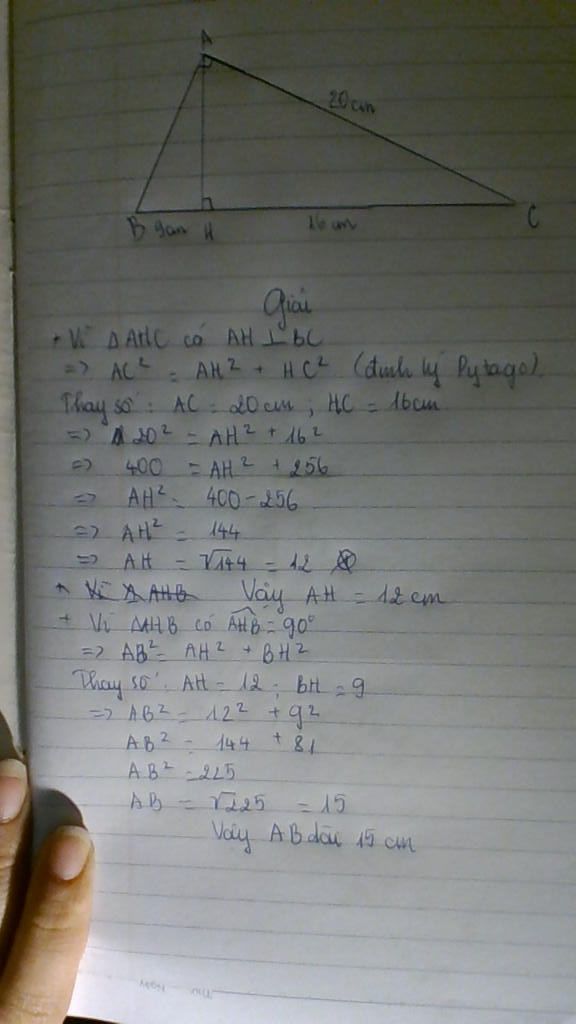 A
20cm
B 9cm H 16cm C
Giải
+ Vì Δ AHC có AH ⊥ BC
=> AC² = AH² + HC² (định lý Pytago).
Thay số : AC = 20cm ; HC = 16cm
=> 20² = AH² + 16²
=> 400 = AH² + 256
=> AH² = 400 - 256
=> AH² = 144
=> AH = √144 = 12
+ Vì Δ AHB Vậy AH = 12cm
+ Vì ΔAHB có AHB = 90°
=> AB² = AH² + BH²
Thay số : AH = 12 ; BH = 9
=> AB² = 12² + 9²
AB² = 144 + 81
AB² = 225
AB = √225 = 15
Vậy AB dài 15 cm
Thứ Ngày